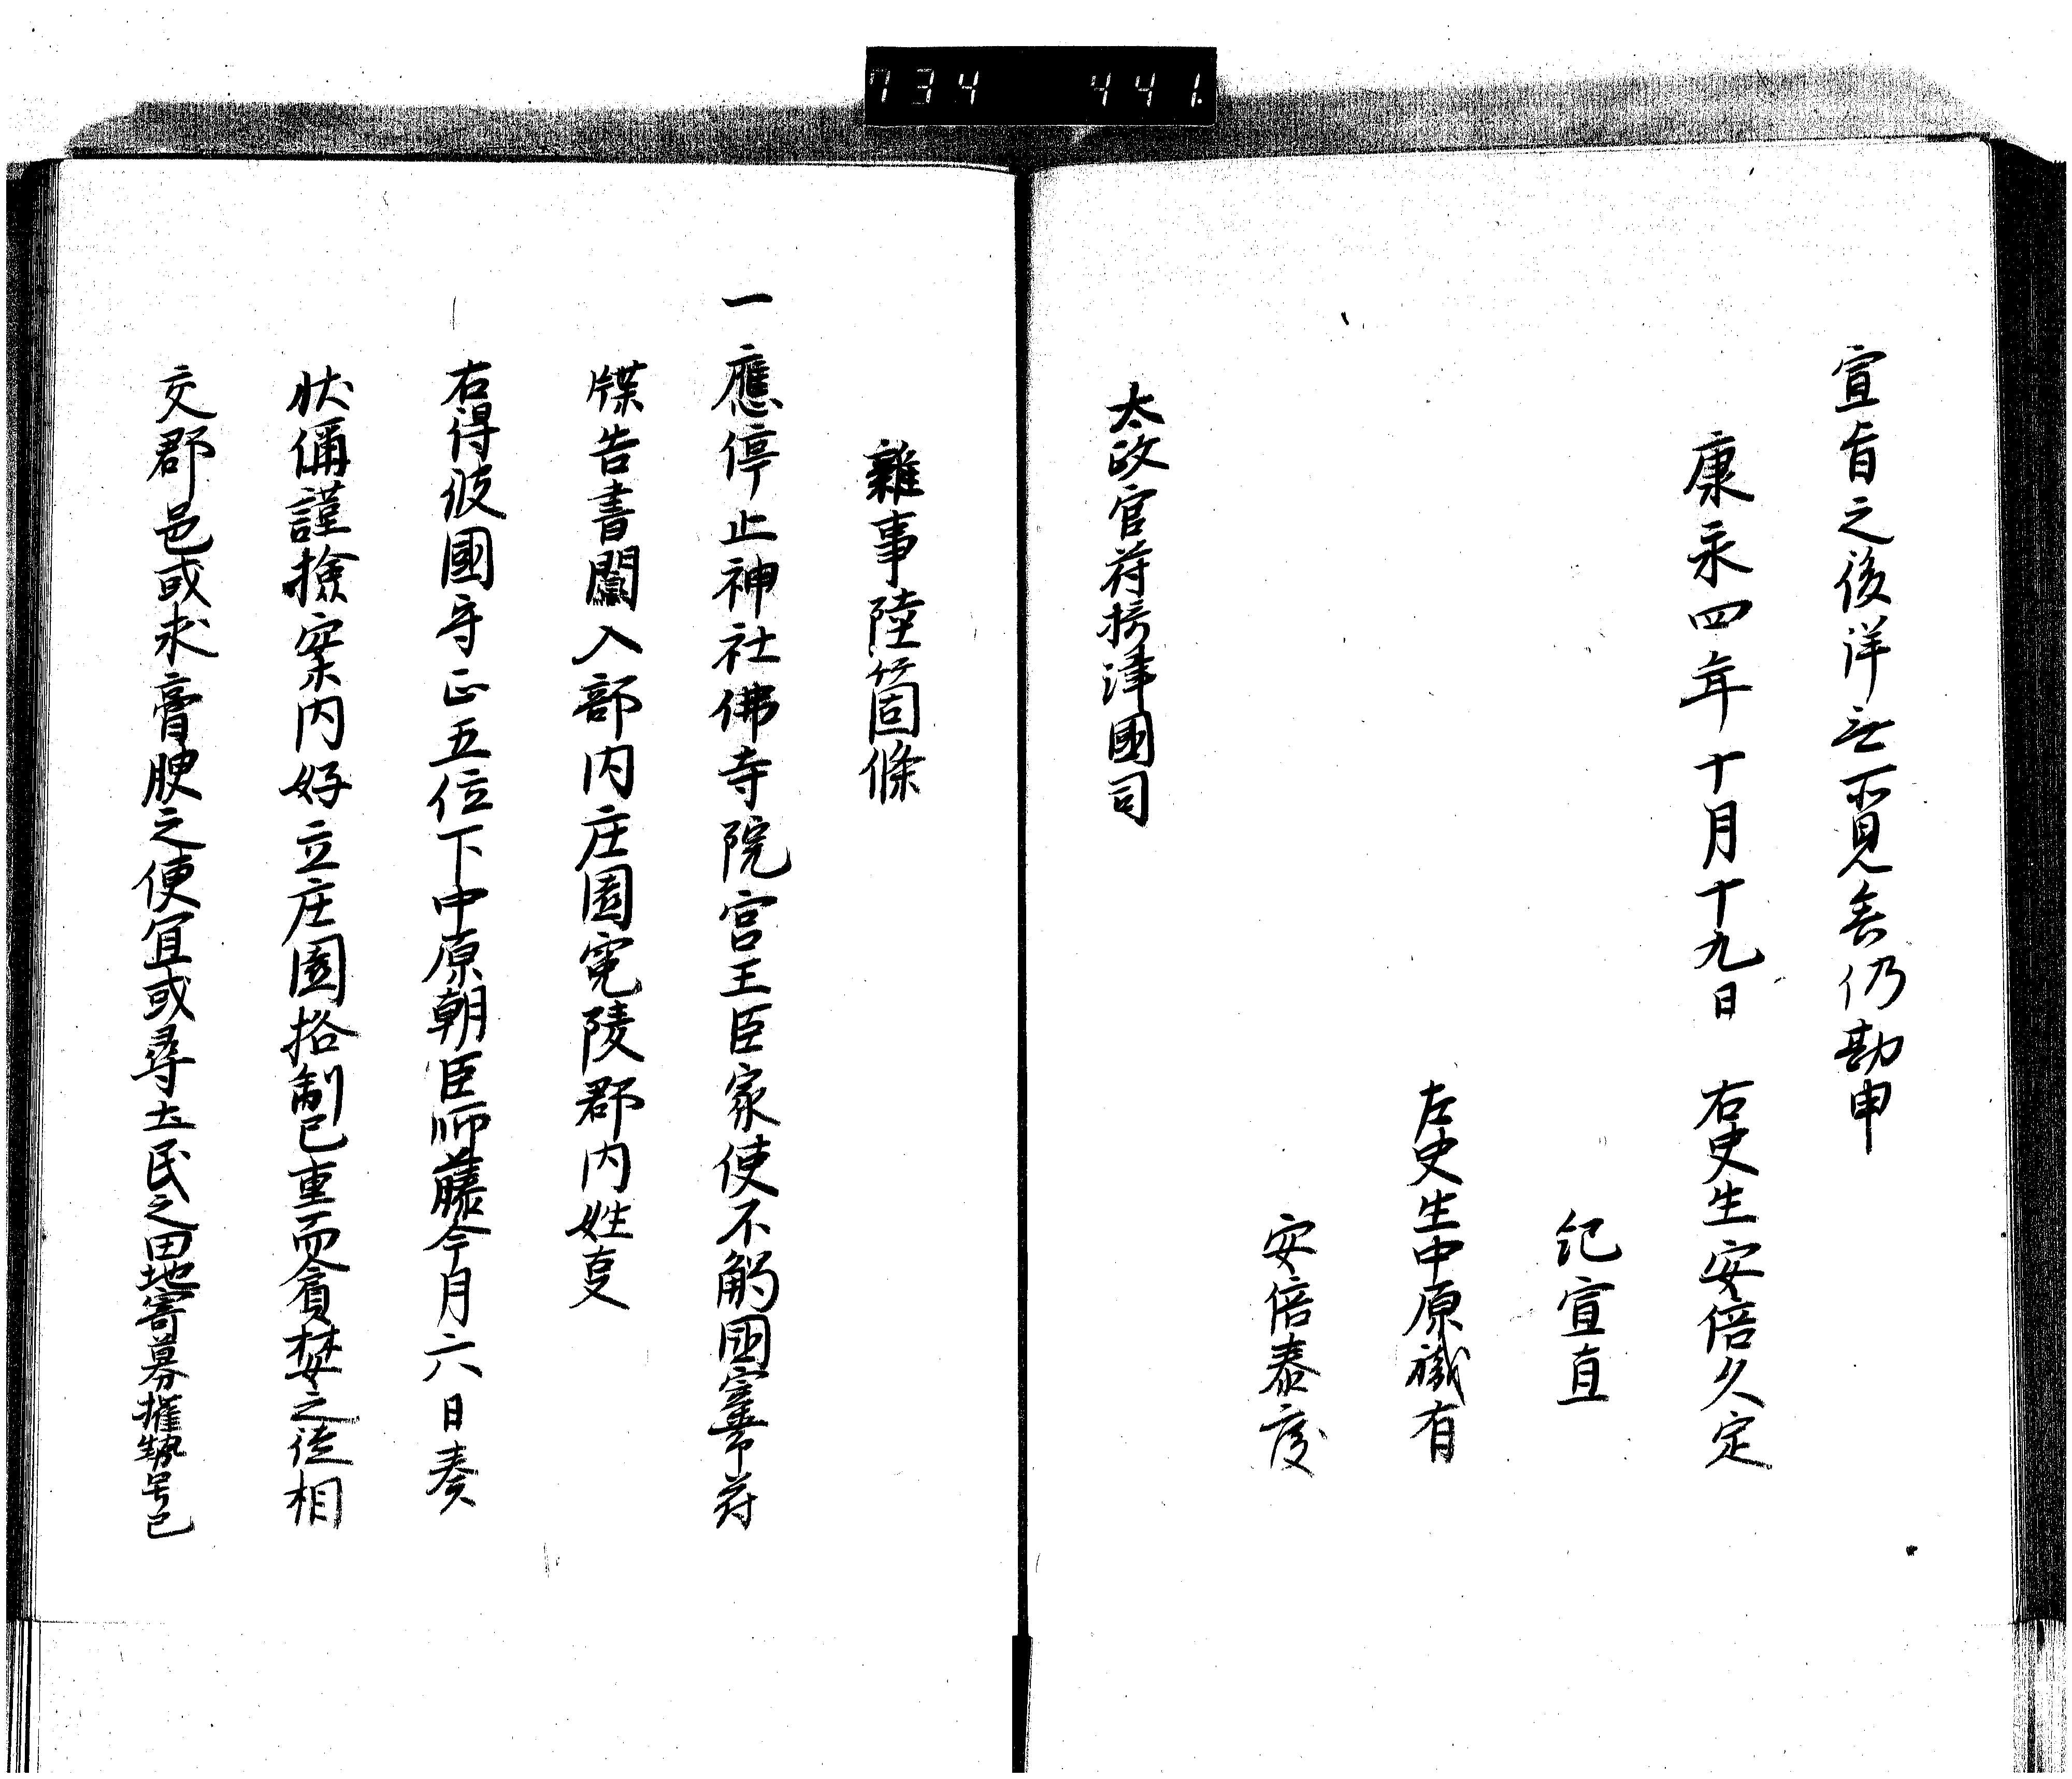 734 441
宣旨之後洋之所見矣仍勘申
康永四年十月十九日 右史生安倍久定
紀宣直
左史生中原職有
安倍泰度
太政官符摂津國司
雜事陸箇條
一應停止神社佛寺院宮王臣家使不觸國宰帯符
牒告書闌入部内庄園寃陵郡内姓事
右得彼國守正五位下中原朝臣師藤今月六日奏
状偁謹撿案内好立庄園格制已重而貪婪之徒相
交郡邑或求膏腴之便宜或尋土民之田地寄募權勢号已